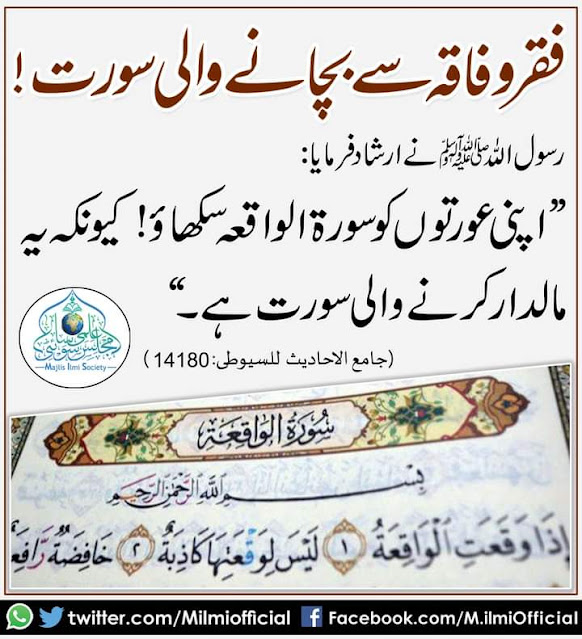 فقر و فاقہ سے بچانے والی سورت!
رسول اللہ ﷺ نے ارشاد فرمایا:
”اپنی عورتوں کو سورۃ الواقعہ سکھاؤ! کیونکہ یہ
مالدار کرنے والی سورت ہے۔“
(جامع الاحادیث للسیوطی: 14180)
مجلس علمی سوسائٹی
Majlis Ilmi Society
سُورَةُ الوَاقِعَةِ
بِسْمِ اللَّهِ الرَّحْمَٰنِ الرَّحِيمِ
إِذَا وَقَعَتِ الْوَاقِعَةُ ١ لَيْسَ لِوَقْعَتِهَا كَاذِبَةٌ ٢ خَافِضَةٌ رَّافِعَ
twitter.com/Milmiofficial Facebook.com/M.ilmiOfficial